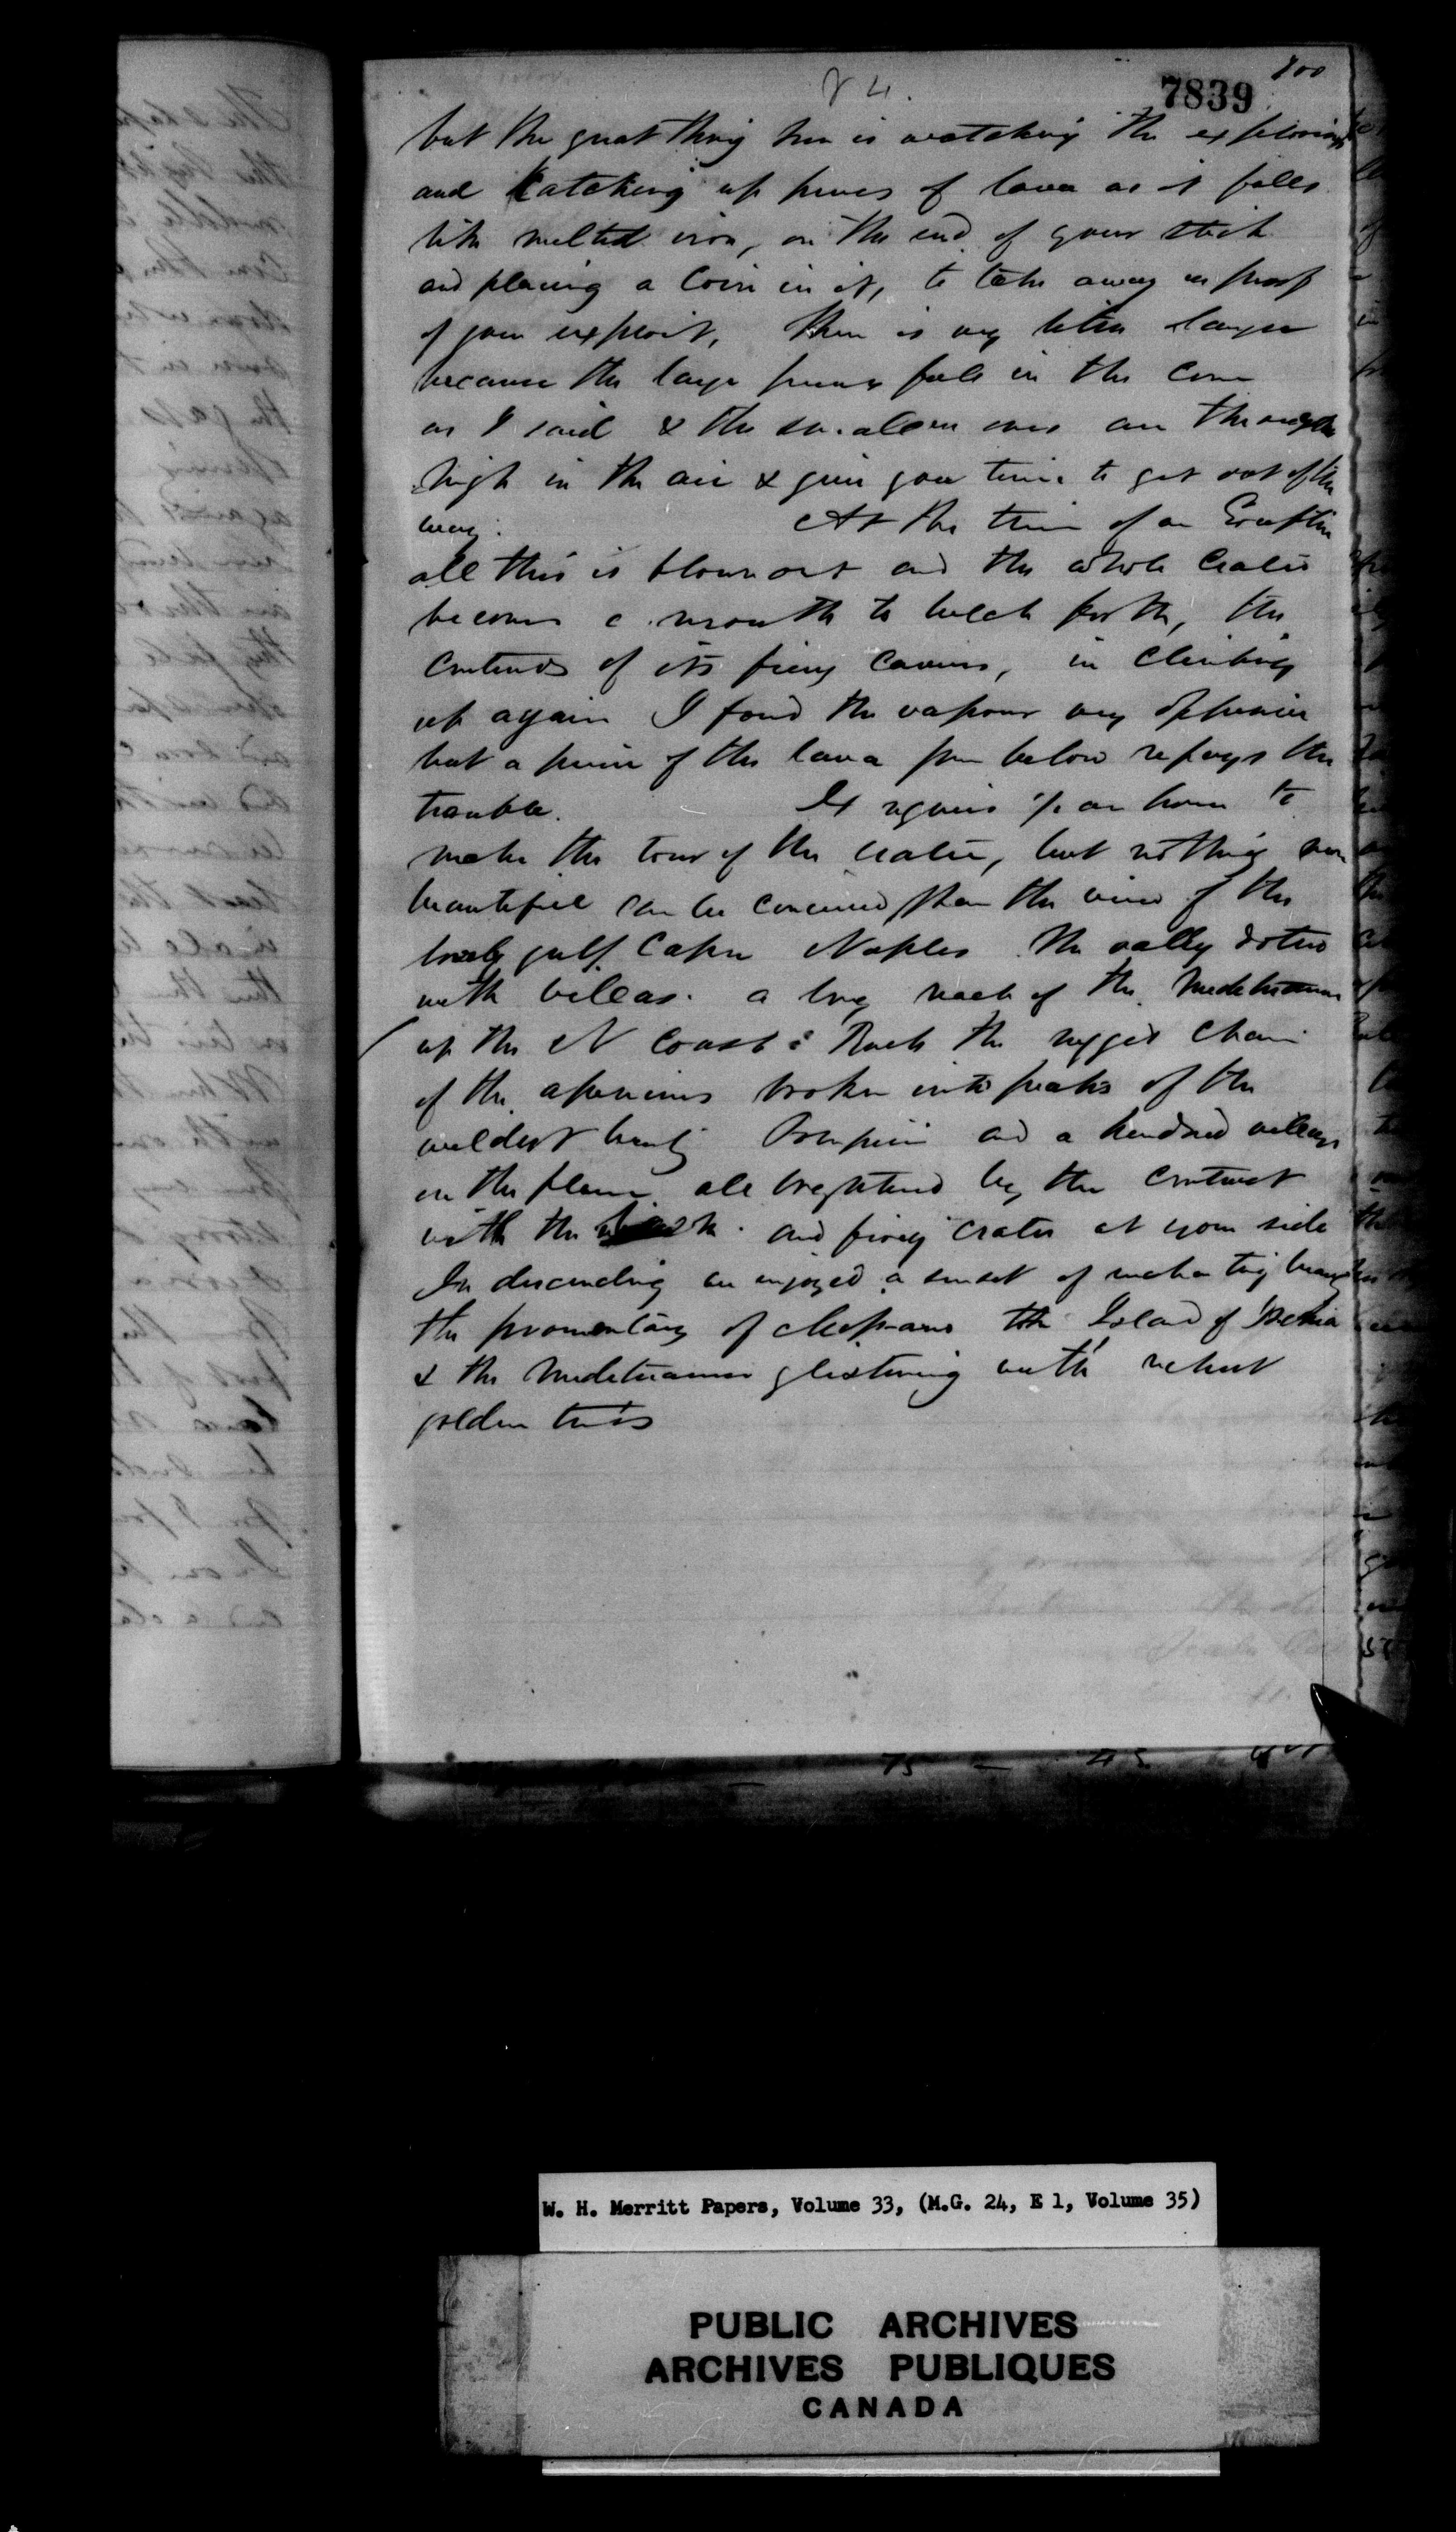 84.
7839
800
but the great thing here is watching the explosions
and catching up pieces of lava as it falls
like melted iron, on the end of your stick
and placing a coin in it, to take away as proof
of your exploit, there is very little danger
because the large pieces fall in the cone
as I said & the smaller ones are thrown
high in the air & give you time to get out of the
way. At the time of an Eruption
all this is blown out and the whole crater
becomes a mouth to belch forth, the
contents of its fiery caverns, in climbing
up again I found the vapour very oppressive
but a piece of the lava from below repays the
trouble. It requires ½ an hour to
make the tour of the crater, but nothing more
beautiful can be conceived than the view of the
lovely gulf Capri Naples the valley dotted
with villas. a long reach of the Mediterranean
up the N coast & Back the rugged chain
of the apenines broken into peaks of the
wildest beauty Pompeii and a hundred villages
on the plain all brightened by the contrast
with the and firey crater at your side
In descending we enjoyed a sunset of enchanting beauty
the promontory of the Island of Ischia
& the Mediterranean glistening with richest
golden tints
W. H. Merritt Papers, Volume 33, (M.G. 24, E 1, Volume 35)
PUBLIC ARCHIVES
ARCHIVES PUBLIQUES
CANADA